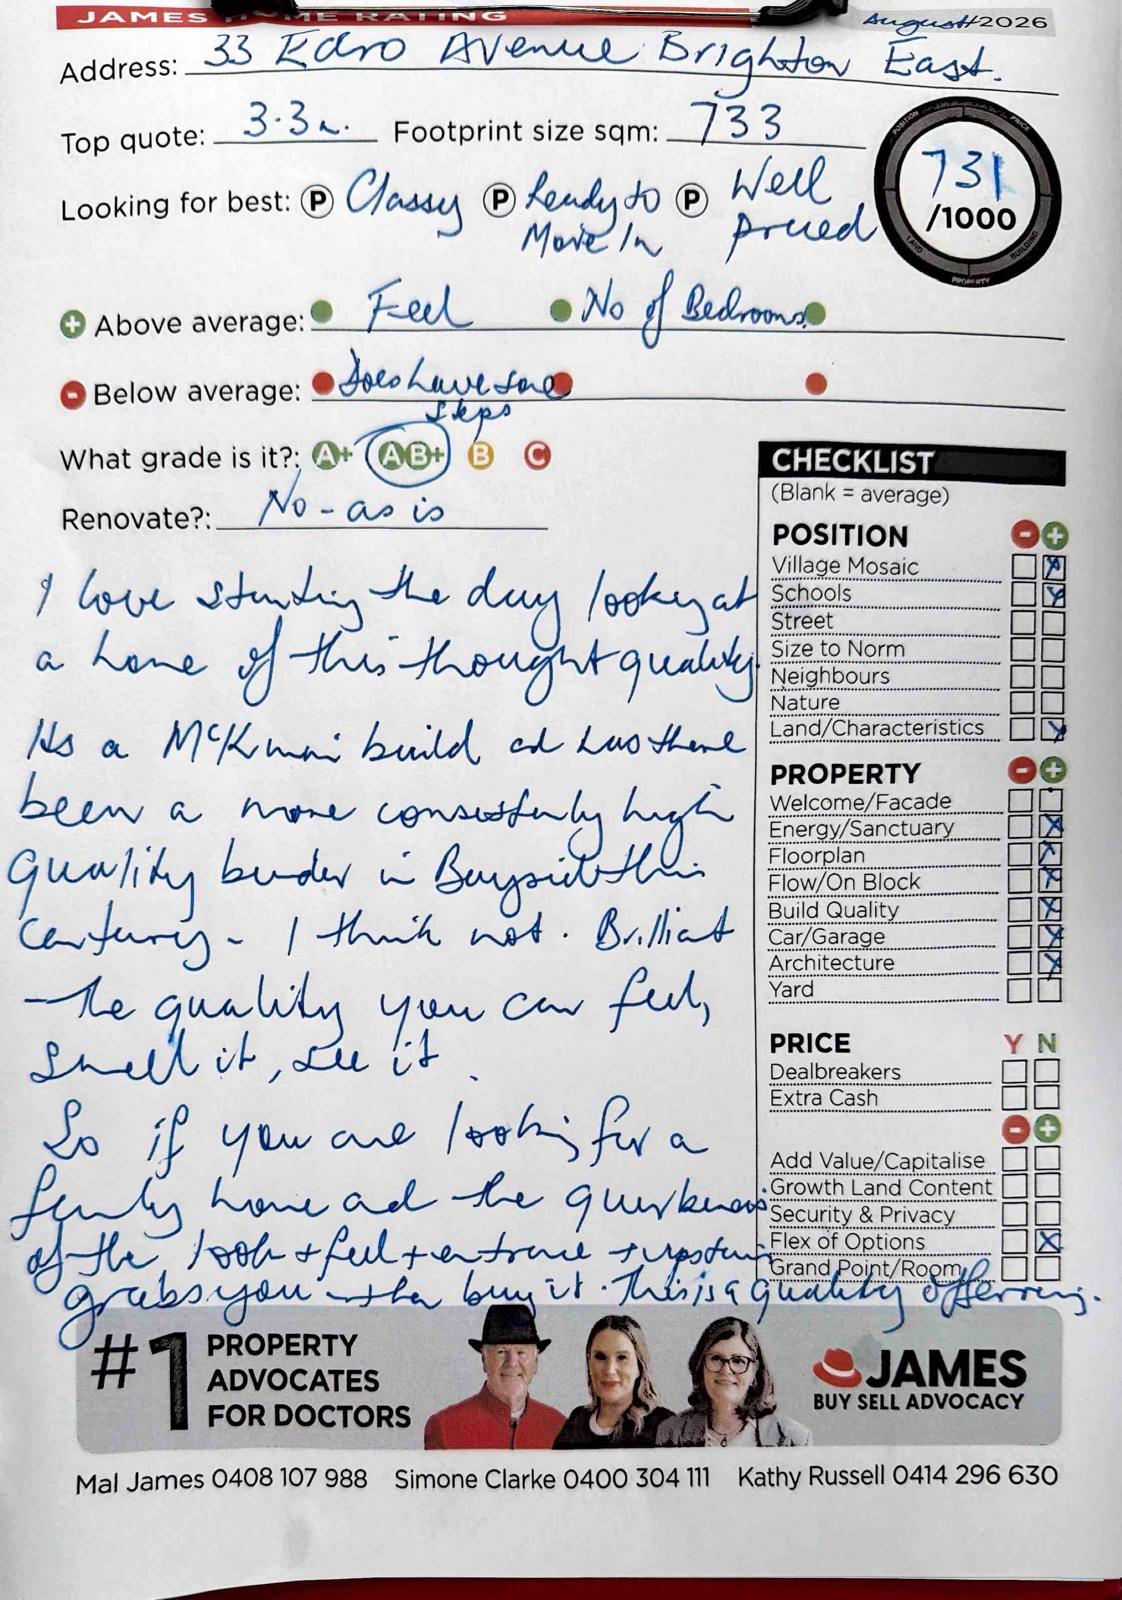 JAMES HOME RATING
August 2026
Address: 33 Edro Avenue Brighton East.
Top quote: 3.3m. Footprint size sqm: 733
731
/1000
POSITION PRICE BUILDING PROPERTY LAND
Looking for best: P Classy P Ready to P Well
Move In priced
+ Above average: Feel No of Bedrooms
- Below average: Does have some
steps
What grade is it?: A+ AB+ B C
Renovate?: No - as is
I love starting the day looking at
a home of this thought quality.
Its a McKimm build and has there
been a more consistently high
quality builder in Bayside this
Century - I think not. Brilliant
the quality you can feel,
smell it, see it.
So if you are looking for a
family home and the
of the look + feel + entrance + upstairs
grabs you then buy it. This is a quality offering.
CHECKLIST
(Blank = average)
POSITION - +
Village Mosaic x
Schools x
Street
Size to Norm
Neighbours
Nature
Land/Characteristics x
PROPERTY - +
Welcome/Facade
Energy/Sanctuary x
Floorplan x
Flow/On Block x
Build Quality x
Car/Garage x
Architecture x
Yard
PRICE Y N
Dealbreakers
Extra Cash
- +
Add Value/Capitalise
Growth Land Content
Security & Privacy
Flex of Options x
Grand Point/Room
#1 PROPERTY
ADVOCATES
FOR DOCTORS
JAMES
BUY SELL ADVOCACY
Mal James 0408 107 988 Simone Clarke 0400 304 111 Kathy Russell 0414 296 630